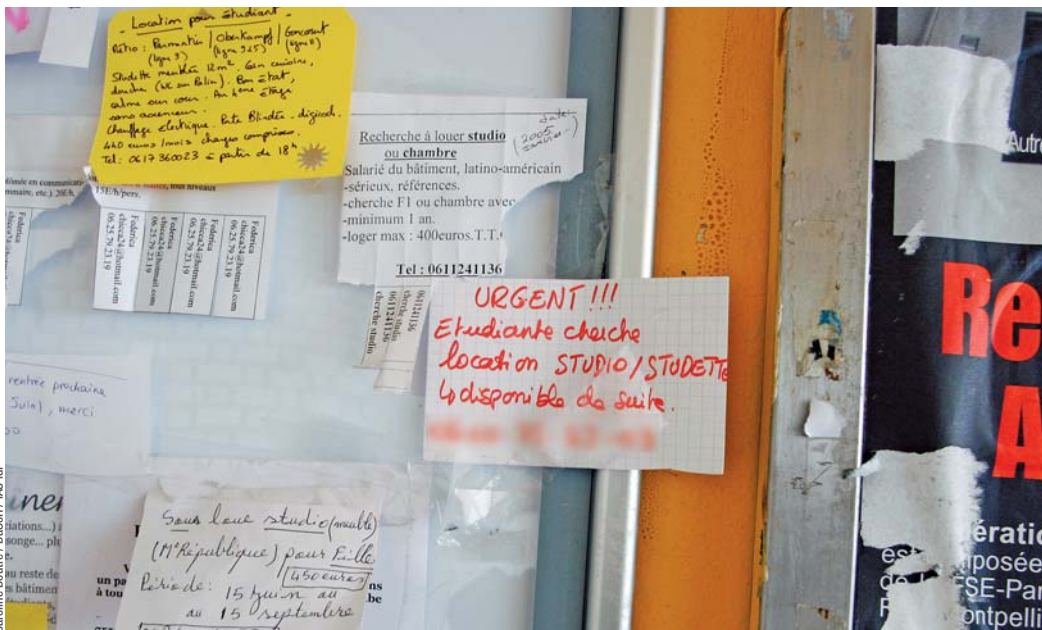 - Location pour étudiant -
Métro : Parmentier / Oberkampf / Goncourt
(ligne 3) (ligne 9 et 5) (ligne 11)
Studette meublée 12 m². Coin cuisine,
douche (WC sur Palier). Bon état,
calme sur cour. Au 4ème étage
sans ascenseur.
Chauffage électrique. Porte Blindée. digicode.
440 euros /mois charges comprises.
Tel: 0617360023 à partir de 18h
Recherche à louer studio
ou chambre
2005
Salarié du bâtiment, latino-américain
-sérieux, références.
-cherche F1 ou chambre avec
-minimum 1 an.
-loger max : 400euros.T.T.
Tel : 0611241136
0611241136
cherche studio
0611241136
cherche studio
15E/h/pers.
tous niveaux
plômée en communicati
mmaire, etc.). 20E/h.
Federica
chicca24@hotmail.com
06.25.79.23.19
Federica
chicca24@hotmail.com
06.25.79.23.19
Federica
chicca24@hotmail.com
06.25.79.23.19
Federica
chicca24@hotmail.com
06.25.79.23.19
URGENT !!!
Etudiante cherche
location STUDIO/STUDETTE
↳ disponible de suite.
rentrée prochaine
Juin), merci
Sous loue studio (meublé)
(M° République) pour Fille
450 euros
Période: 15 juin au
au 15 septembre
iations...)
songe... pl
au reste de
s bâtimen
un pa
à tou
ns
be
Autre
Re
A
ératio
est
mposée
SE-Par
ontpelli